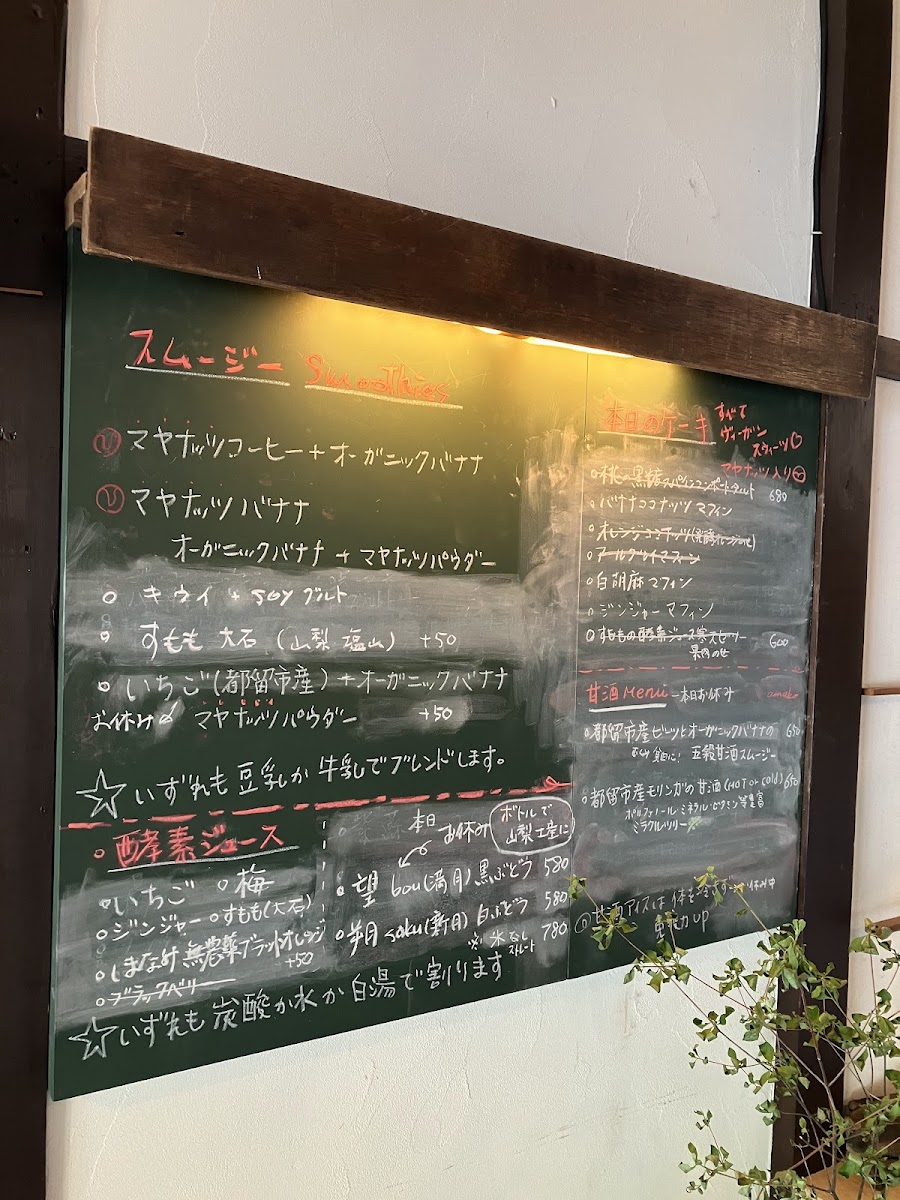 スムージー Smoothies
マヤナッツコーヒー+オーガニックバナナ
マヤナッツバナナ
オーガニックバナナ + マヤナッツパウダー
キウイ + soy グルト
すもも 大石 (山梨 塩山) +50
いちご(都留市産)+オーガニックバナナ
お休み マヤナッツパウダー +50
☆いずれも豆乳か牛乳でブレンドします。
酵素ジュース
いちご 梅
ジンジャー すもも(大石)
しまなみ 無農薬ブラッドオレンジ
+50
ブラックベリー
☆いずれも炭酸か水か白湯で割ります
本日
お休み
ボトルで
山梨土産に
望 bou(満月) 黒ぶどう 580
朔 saku(新月) 白ぶどう 580
※ 氷なし 780
ストレート
本日のケーキ
すべて
ヴィーガン
スウィーツ
マヤナッツ入り
680
バナナココナッツマフィン
オレンジココナッツ
アールグレイマフィン
白胡麻マフィン
ジンジャーマフィン
すももの酵素ジュース寒天ゼリー 600
果肉のせ
甘酒 Menu 本日お休み
都留市産ビーツとオーガニックバナナの 650
五穀甘酒スムージー
都留市産モリンガの甘酒(HOT or COLD) 650
ポリフェノール・ミネラル・ビタミン等豊富
ミラクルツリー
甘酒アイスは体を冷さず 休み中
免疫力UP